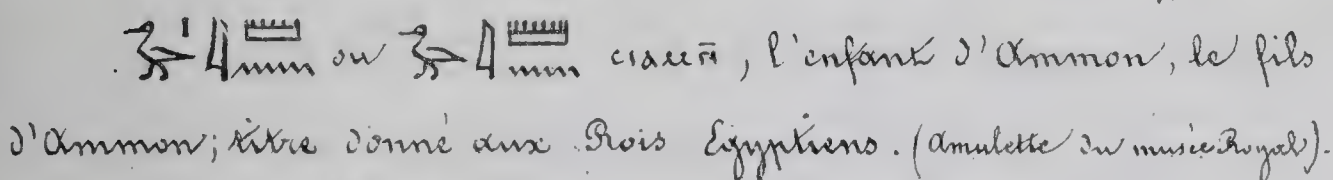 𓅭𓏤𓇋𓏠𓈖 ou 𓅭𓇋𓏠𓈖 ⲥⲓⲁⲙⲛ̄, l'enfant d'Ammon, le fils
d'Ammon; titre donné aux Rois Egyptiens. (Amulette du musée Royal).